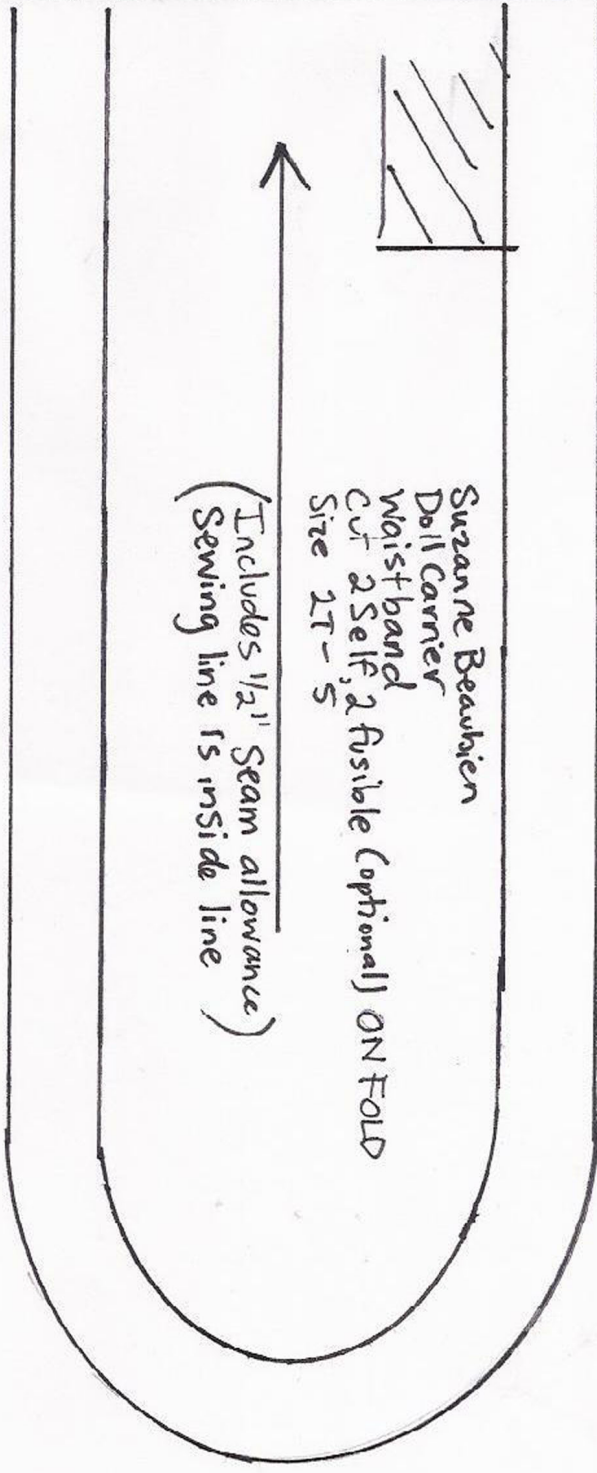 Suzanne Beaubien
Doll Carrier
Waistband
Cut 2 Self, 2 fusible (optional) ON FOLD
Size 2T-5
(Includes 1/2" Seam allowance
Sewing line is inside line)